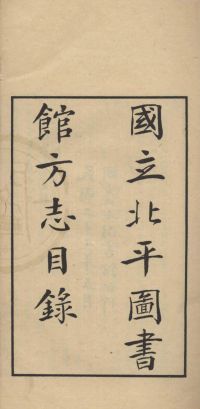 國立北平圖書
館方志目錄